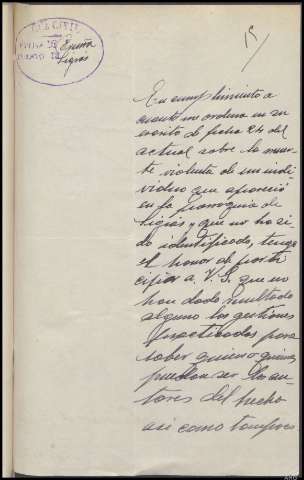 15
CIVIL
Espiña
Ligüs
En cumplimiento a
cuanto me ordena en su
escrito de fecha 24 del
actual sobre la muer-
te violenta de un indi-
viduo que apareció
en la parroquia de
y que no ha si-
do identificado, tengo
el honor de parti
cipar a V.S. que no
han dado resultado
alguno las gestiones
practicadas para
saber quien o quienes
puedan ser los au-
tores del hecho
asi como tampoco